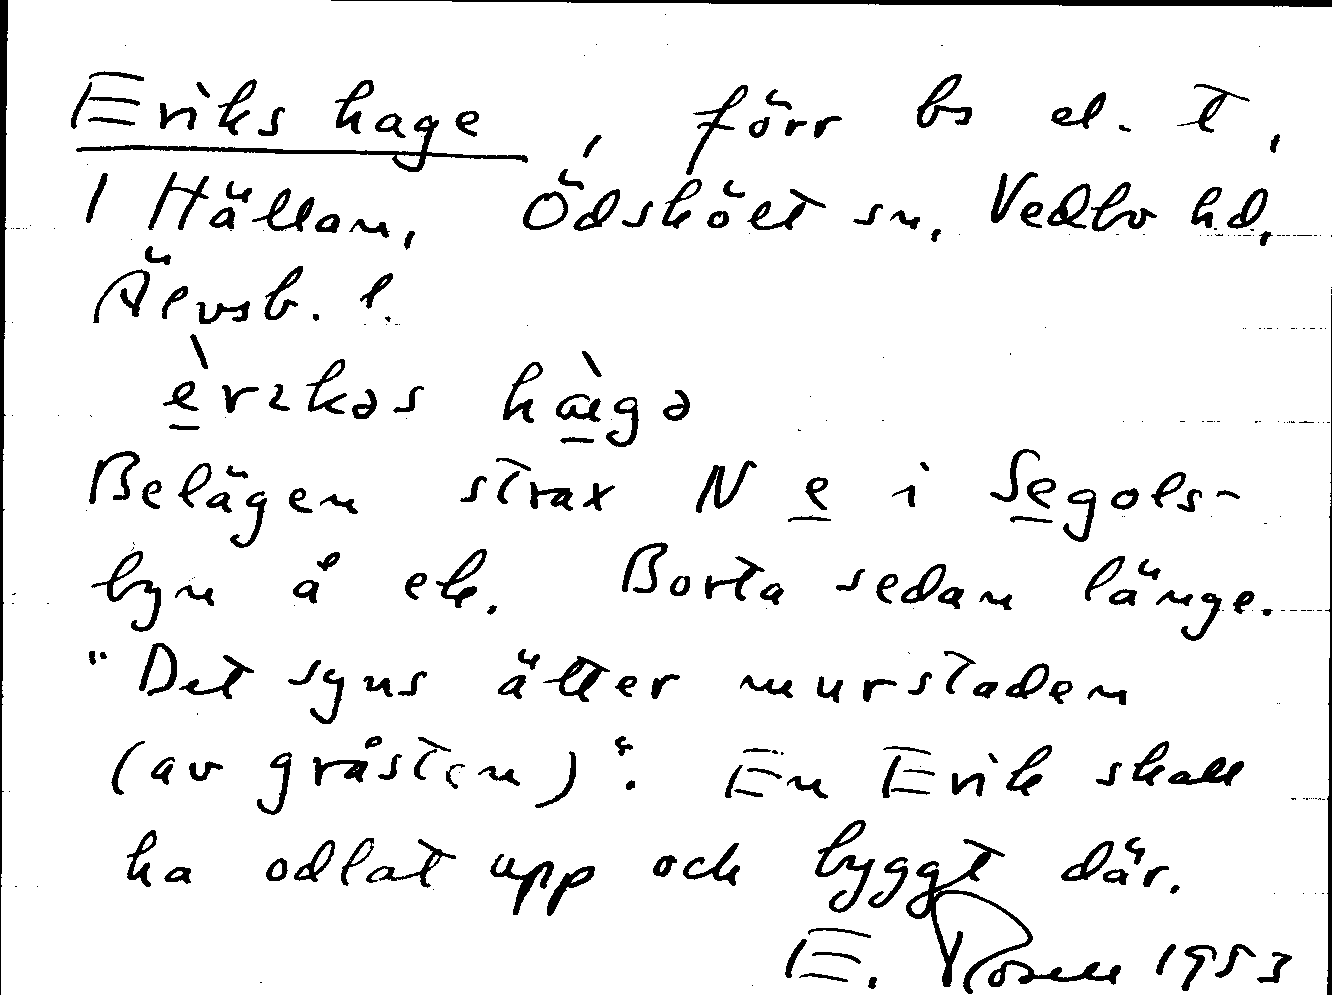 Eriks hage, förr bs el. t,
1 Hällan, Ödskölt sn, Vedbo hd,
Älvsb. l.
è̱rıkəs hæ̱̀gə
Belägen strax N e̱ i Se̱gols-
byn å ek. Borta sedan länge.
"Det syns ätter murstaden
(av gråsten)". En Erik skall
ha odlat upp och byggt där.
E. Rosell 1953